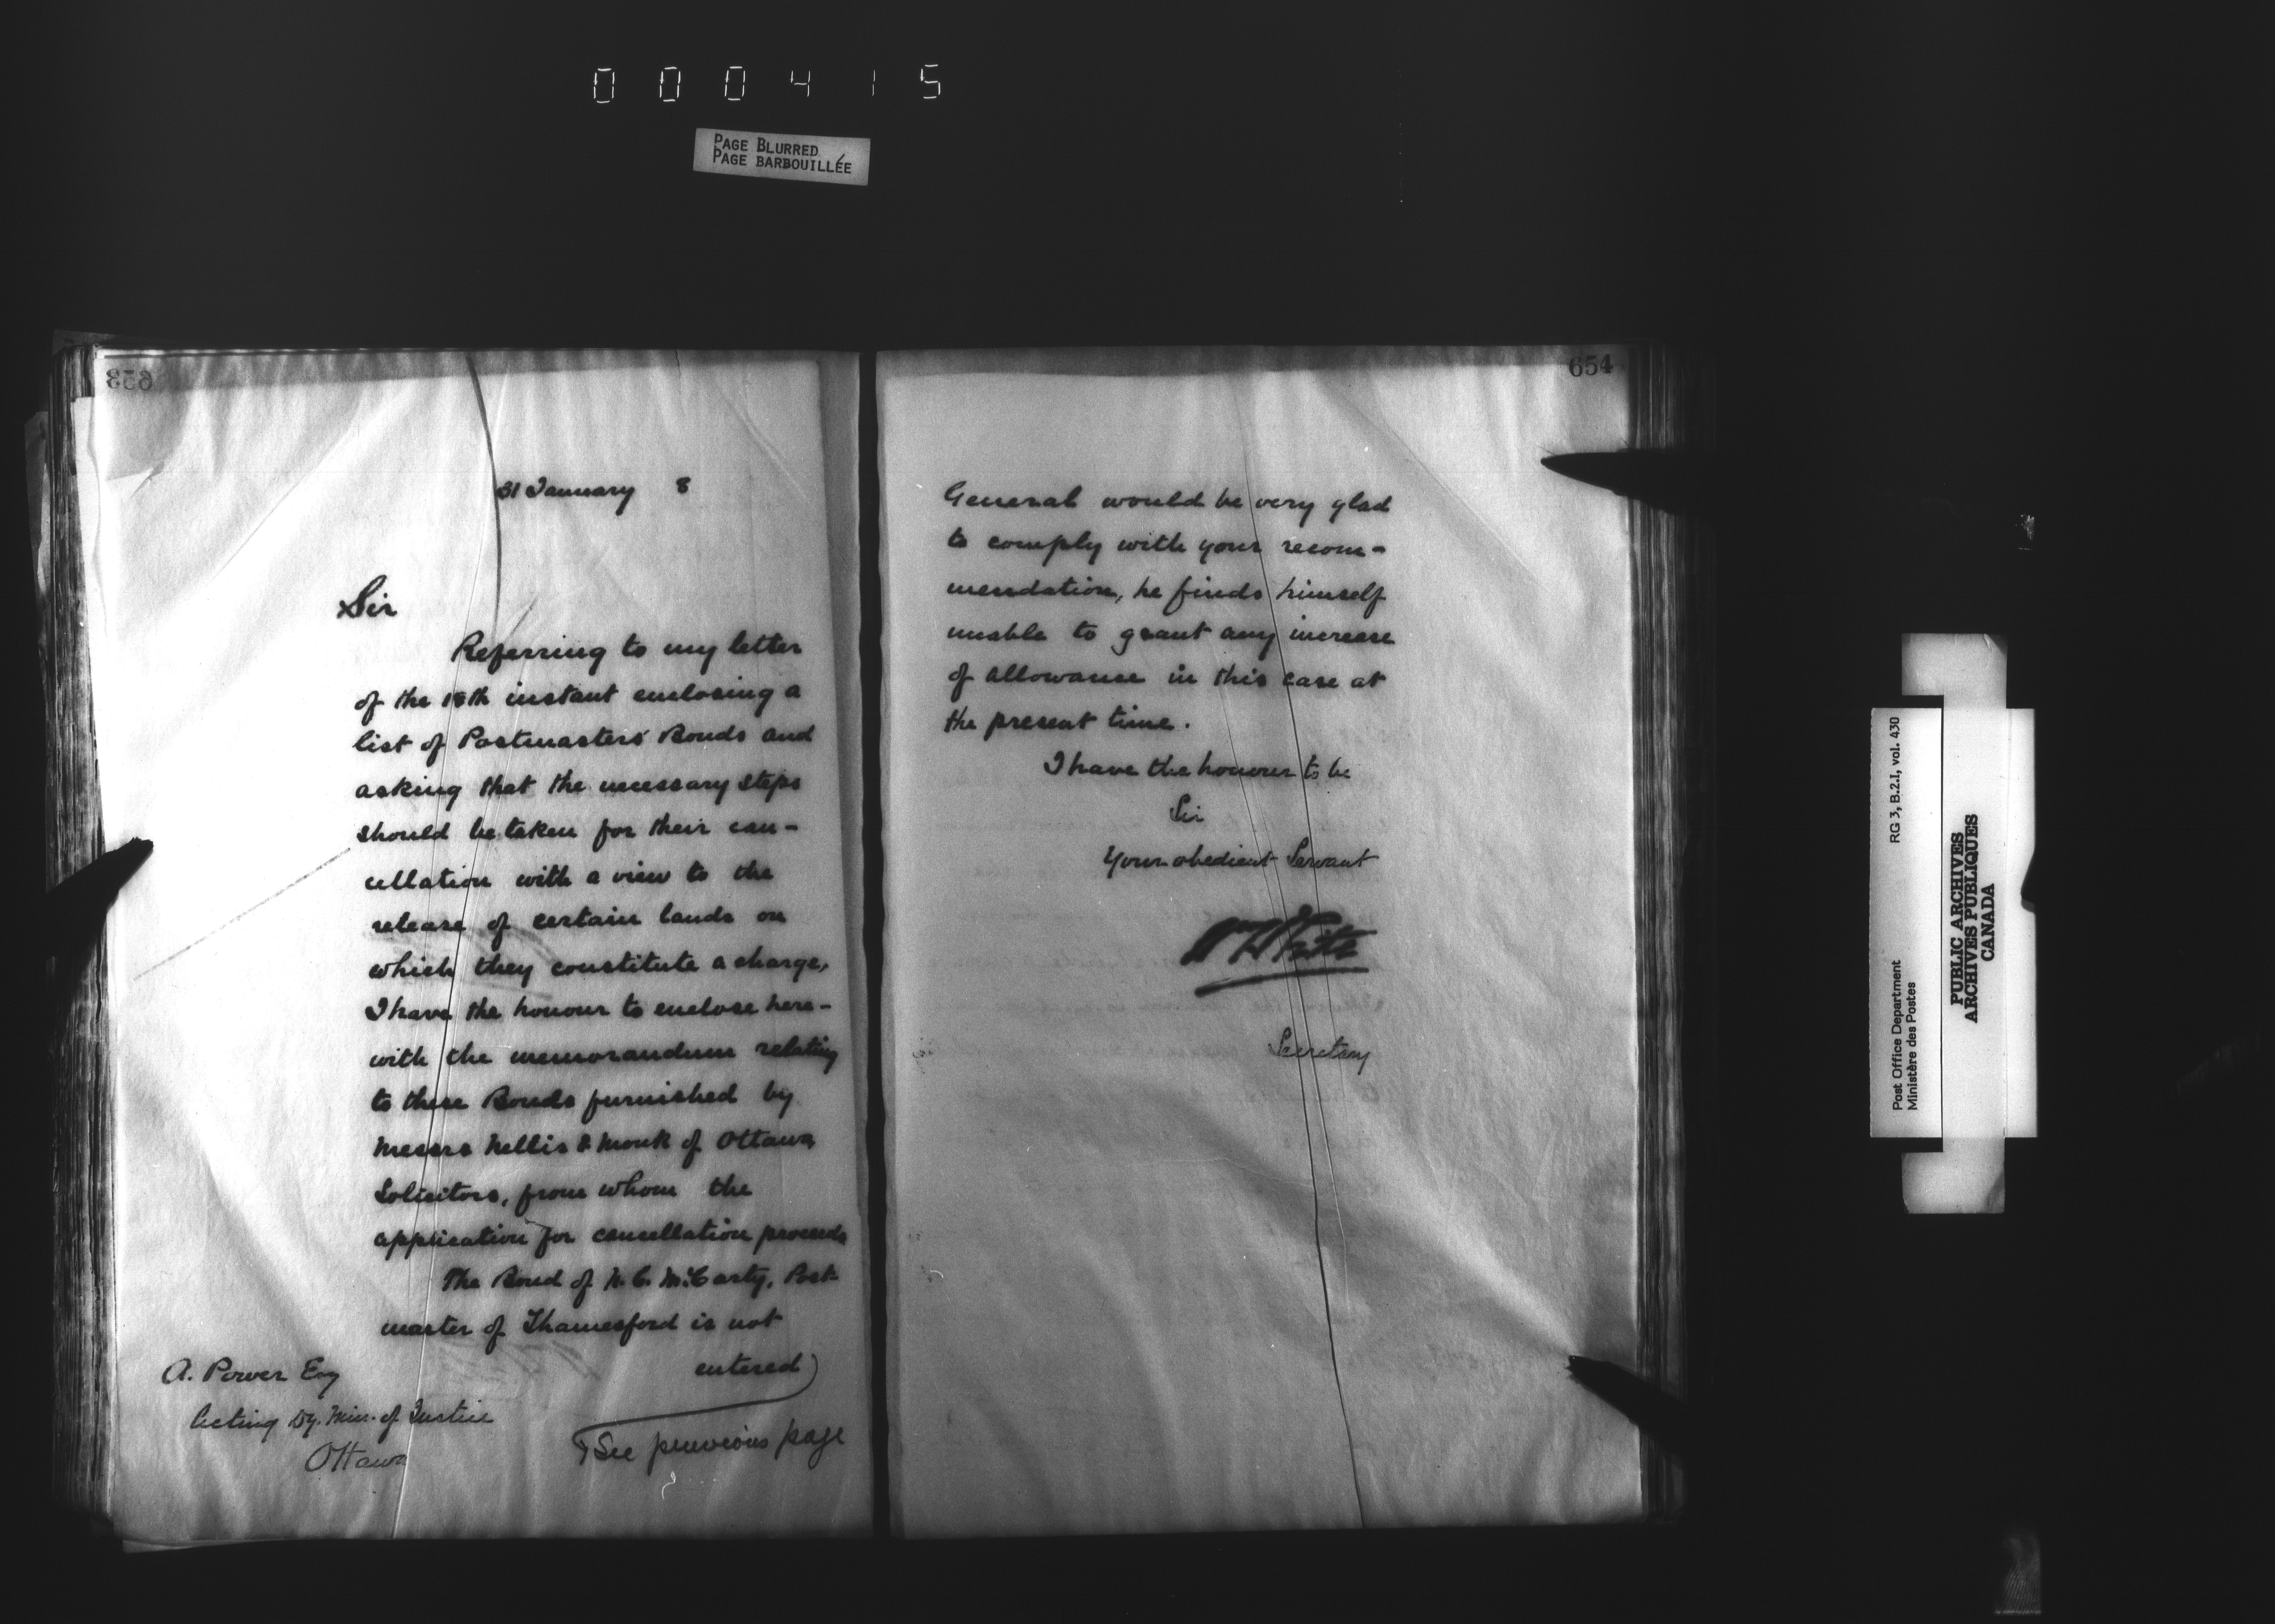 000415
PAGE BLURRED
PAGE BARBOUILLÉE
653
31 January 8
Sir
Referring to my letter
of the 18th instant enclosing a
list of Postmasters' Bonds and
asking that the necessary steps
should be taken for their can-
cellation with a view to the
release of certain lands on
which they constitute a charge,
I have the honour to enclose here-
with the memorandum relating
to these Bonds furnished by
Messrs Nellis & Monk of Ottawa
Solicitors, from whom the
application for cancellation proceeds
The Bond of N. C. McCarty, Post-
master of Thamesford is not
entered
A. Power Esq
Acting Dy. Min. of Justice
Ottawa
See previous page
654
General would be very glad
to comply with your recom-
mendation, he finds himself
unable to grant any increase
of allowance in this case at
the present time.
I have the honour to be
Sir
Your obedient Servant
Wm White
Secretary
Post Office Department
Ministère des Postes
RG 3, B.2.I, vol. 430
PUBLIC ARCHIVES
ARCHIVES PUBLIQUES
CANADA